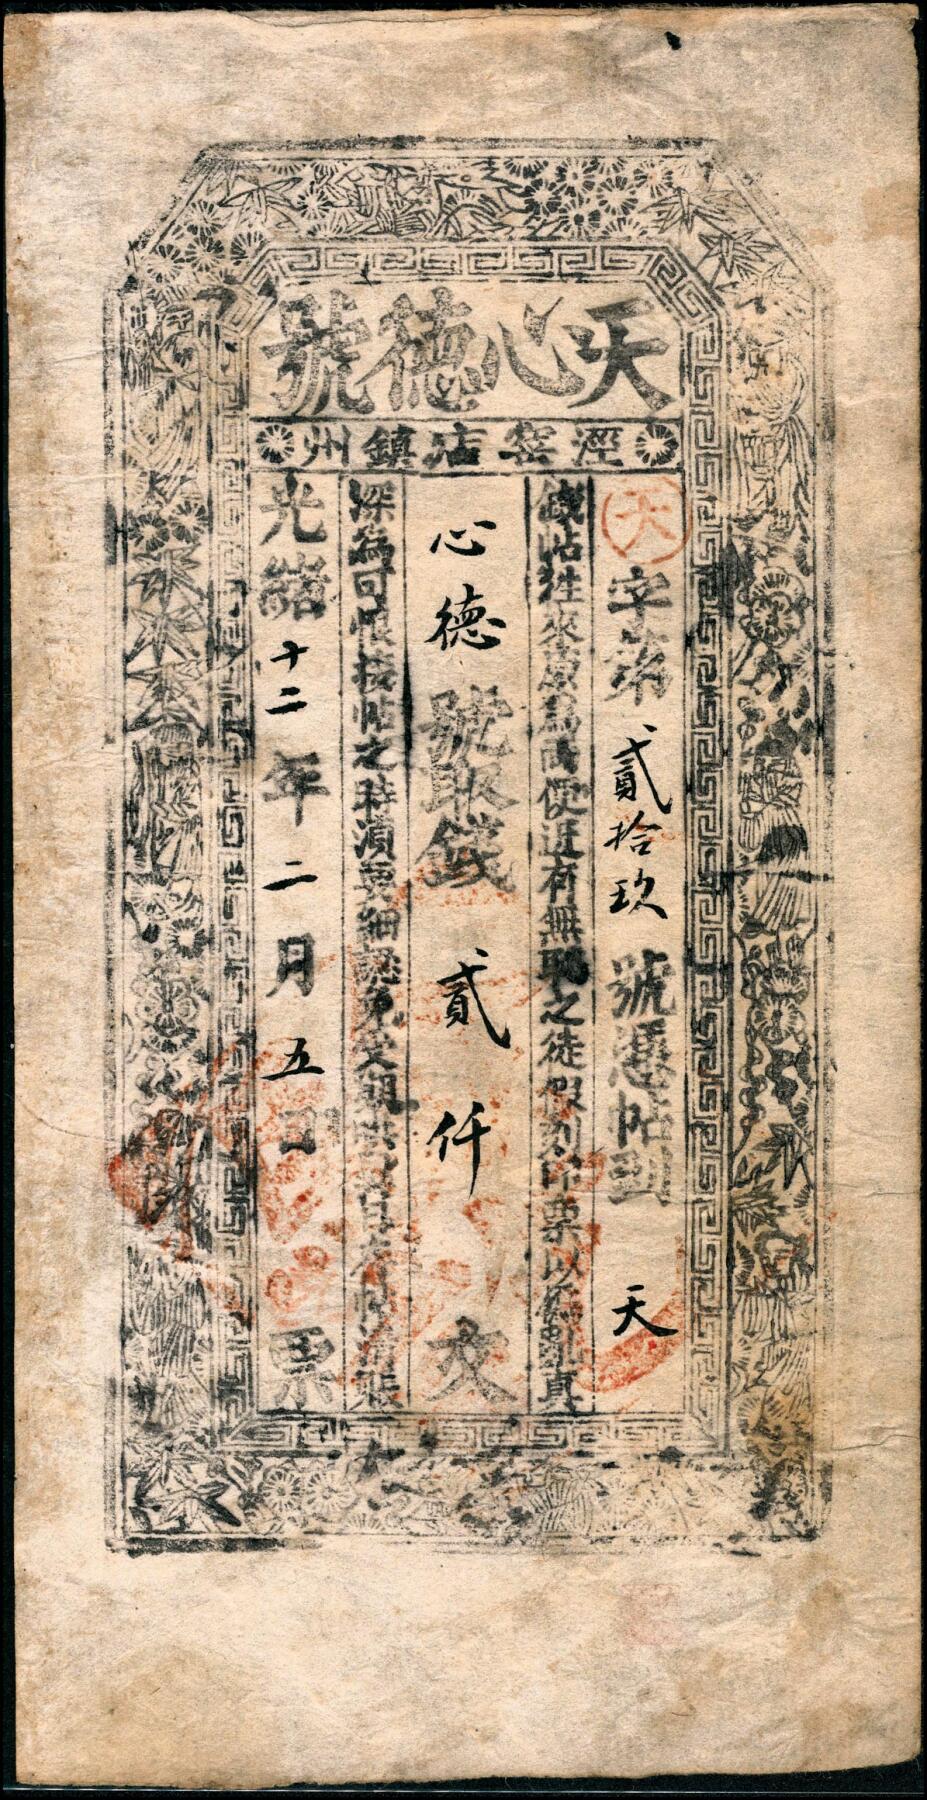 天心德號
涇窑店鎮州
天字第貳拾玖號憑帖到天
錢帖往來原為兩便近有無恥之徒假刻印票以偽亂真
心德號取錢貳仟文
深為可恨接帖之時須要細認
光緒十二年二月五日票